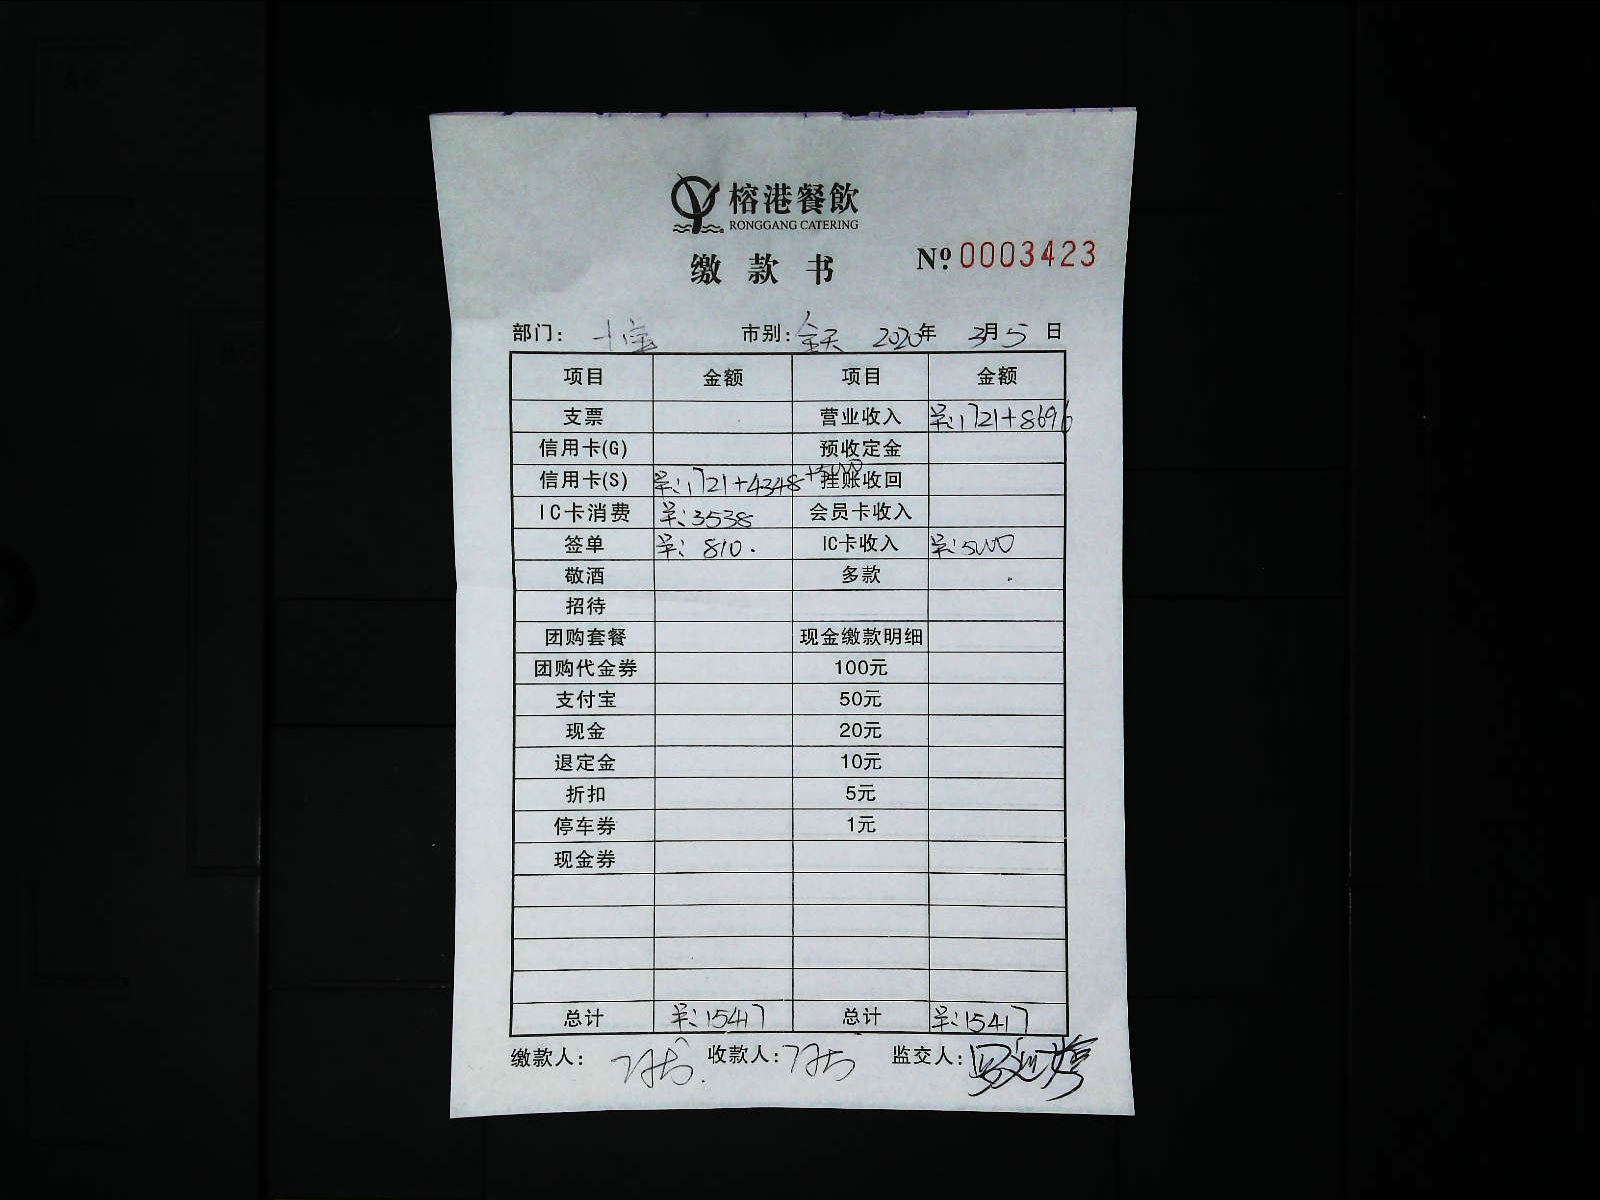 榕港餐飲
RONGGANG CATERING
缴款书
Nº 0003423
部门： 市别：全天 2020年 3月5日
项目 金额 项目 金额
支票 营业收入 ¥:1721+8696
信用卡(G) 预收定金
信用卡(S) ¥:1721+4348+5000 挂账收回
IC卡消费 ¥:3538 会员卡收入
签单 ¥:810. IC卡收入 ¥:5000
敬酒 多款
招待
团购套餐 现金缴款明细
团购代金券 100元
支付宝 50元
现金 20元
退定金 10元
折扣 5元
停车券 1元
现金券
总计 ¥:15417 总计 ¥:15417
缴款人： 收款人： 监交人：